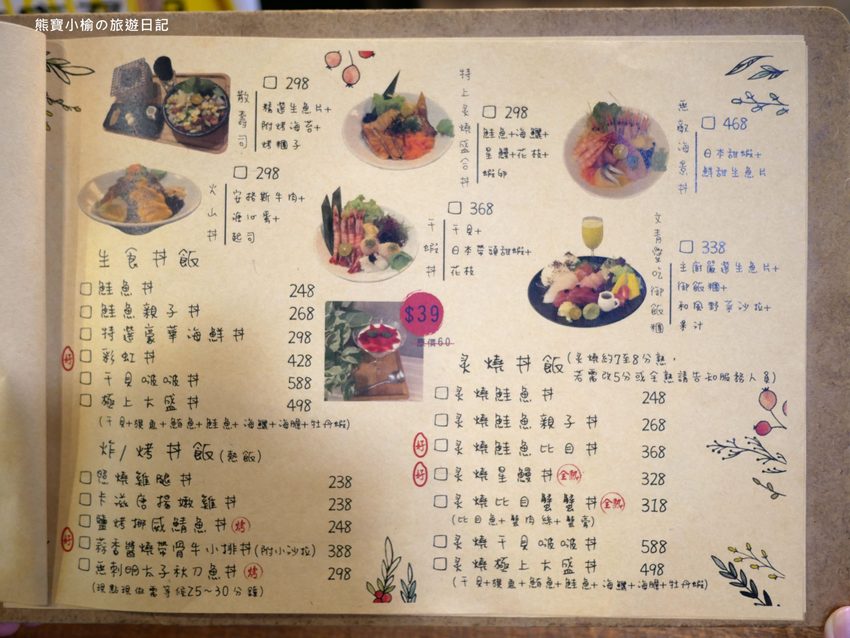 熊寶小榆の旅遊日記
散壽司
298
精選生魚片+
附烤海苔+
烤糰子
火山丼
298
安格斯牛肉+
溏心蛋+
起司
特上炙燒盛合丼
298
鮭魚+海鱺+
星鰻+花枝+
蝦卵
干蝦丼
368
干貝+
日本帶頭甜蝦+
花枝
無敵海景丼
468
日本甜蝦+
鮮甜生魚片
文青愛吃御飯糰
338
主廚嚴選生魚片+
御飯糰+
和風野菜沙拉+
果汁
$39
原價60
生食丼飯
鮭魚丼 248
鮭魚親子丼 268
特選豪華海鮮丼 298
好 彩虹丼 428
干貝啵啵丼 588
極上大盛丼 498
(干貝+旗魚+鮪魚+鮭魚+海鱺+海膽+牡丹蝦)
炸/烤丼飯(熱飯)
照燒雞腿丼 238
卡滋唐揚嫩雞丼 238
鹽烤挪威鯖魚丼 烤 248
好 蒜香醬燒帶骨牛小排丼(附小沙拉) 388
無刺明太子秋刀魚丼 烤 298
(現點現做需等候25~30分鐘)
炙燒丼飯(炙燒約7至8分熟,
若需改5分或全熟請告知服務人員)
炙燒鮭魚丼 248
炙燒鮭魚親子丼 268
好 炙燒鮭魚比目丼 368
好 炙燒星鰻丼 全熟 328
炙燒比目蟹蟹丼 全熟 318
(比目魚+蟹肉絲+蟹膏)
炙燒干貝啵啵丼 588
炙燒極上大盛丼 498
(干貝+旗魚+鮪魚+鮭魚+海鱺+海膽+牡丹蝦)